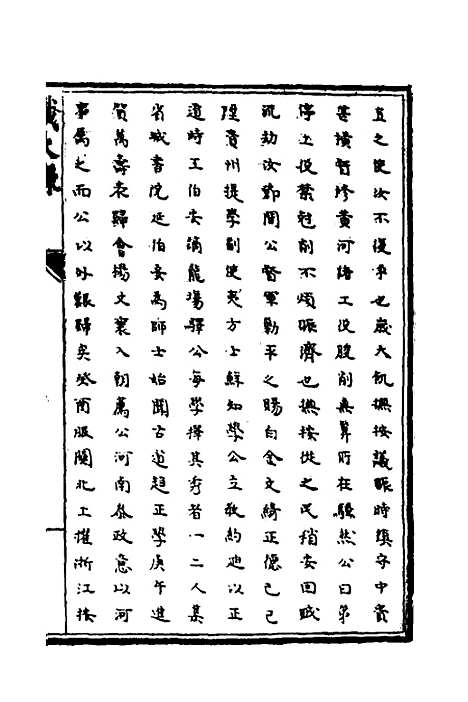 直之使汝不復爭也歲大飢撫按議賑時鎮守中貴
等橫暫修黃河諸工役朘削無算所在騷然公曰第
停工役禁剋削不煩賑濟也撫按從之民稍安回賊
流劫汝鄧間公督軍勦平之賜白金文綺正德己巳
陞貴州提學副使夷方士鮮知學公立教約迪以正
道時王伯安謫龍場驛公每學擇其秀者一二人集
省城書院延伯安為師士始聞古道趨正學庚午進
賀萬壽表歸會楊文襄入朝薦公河南參政意以河
事屬之而公以外艱歸矣癸酉服闋北上擢浙江按